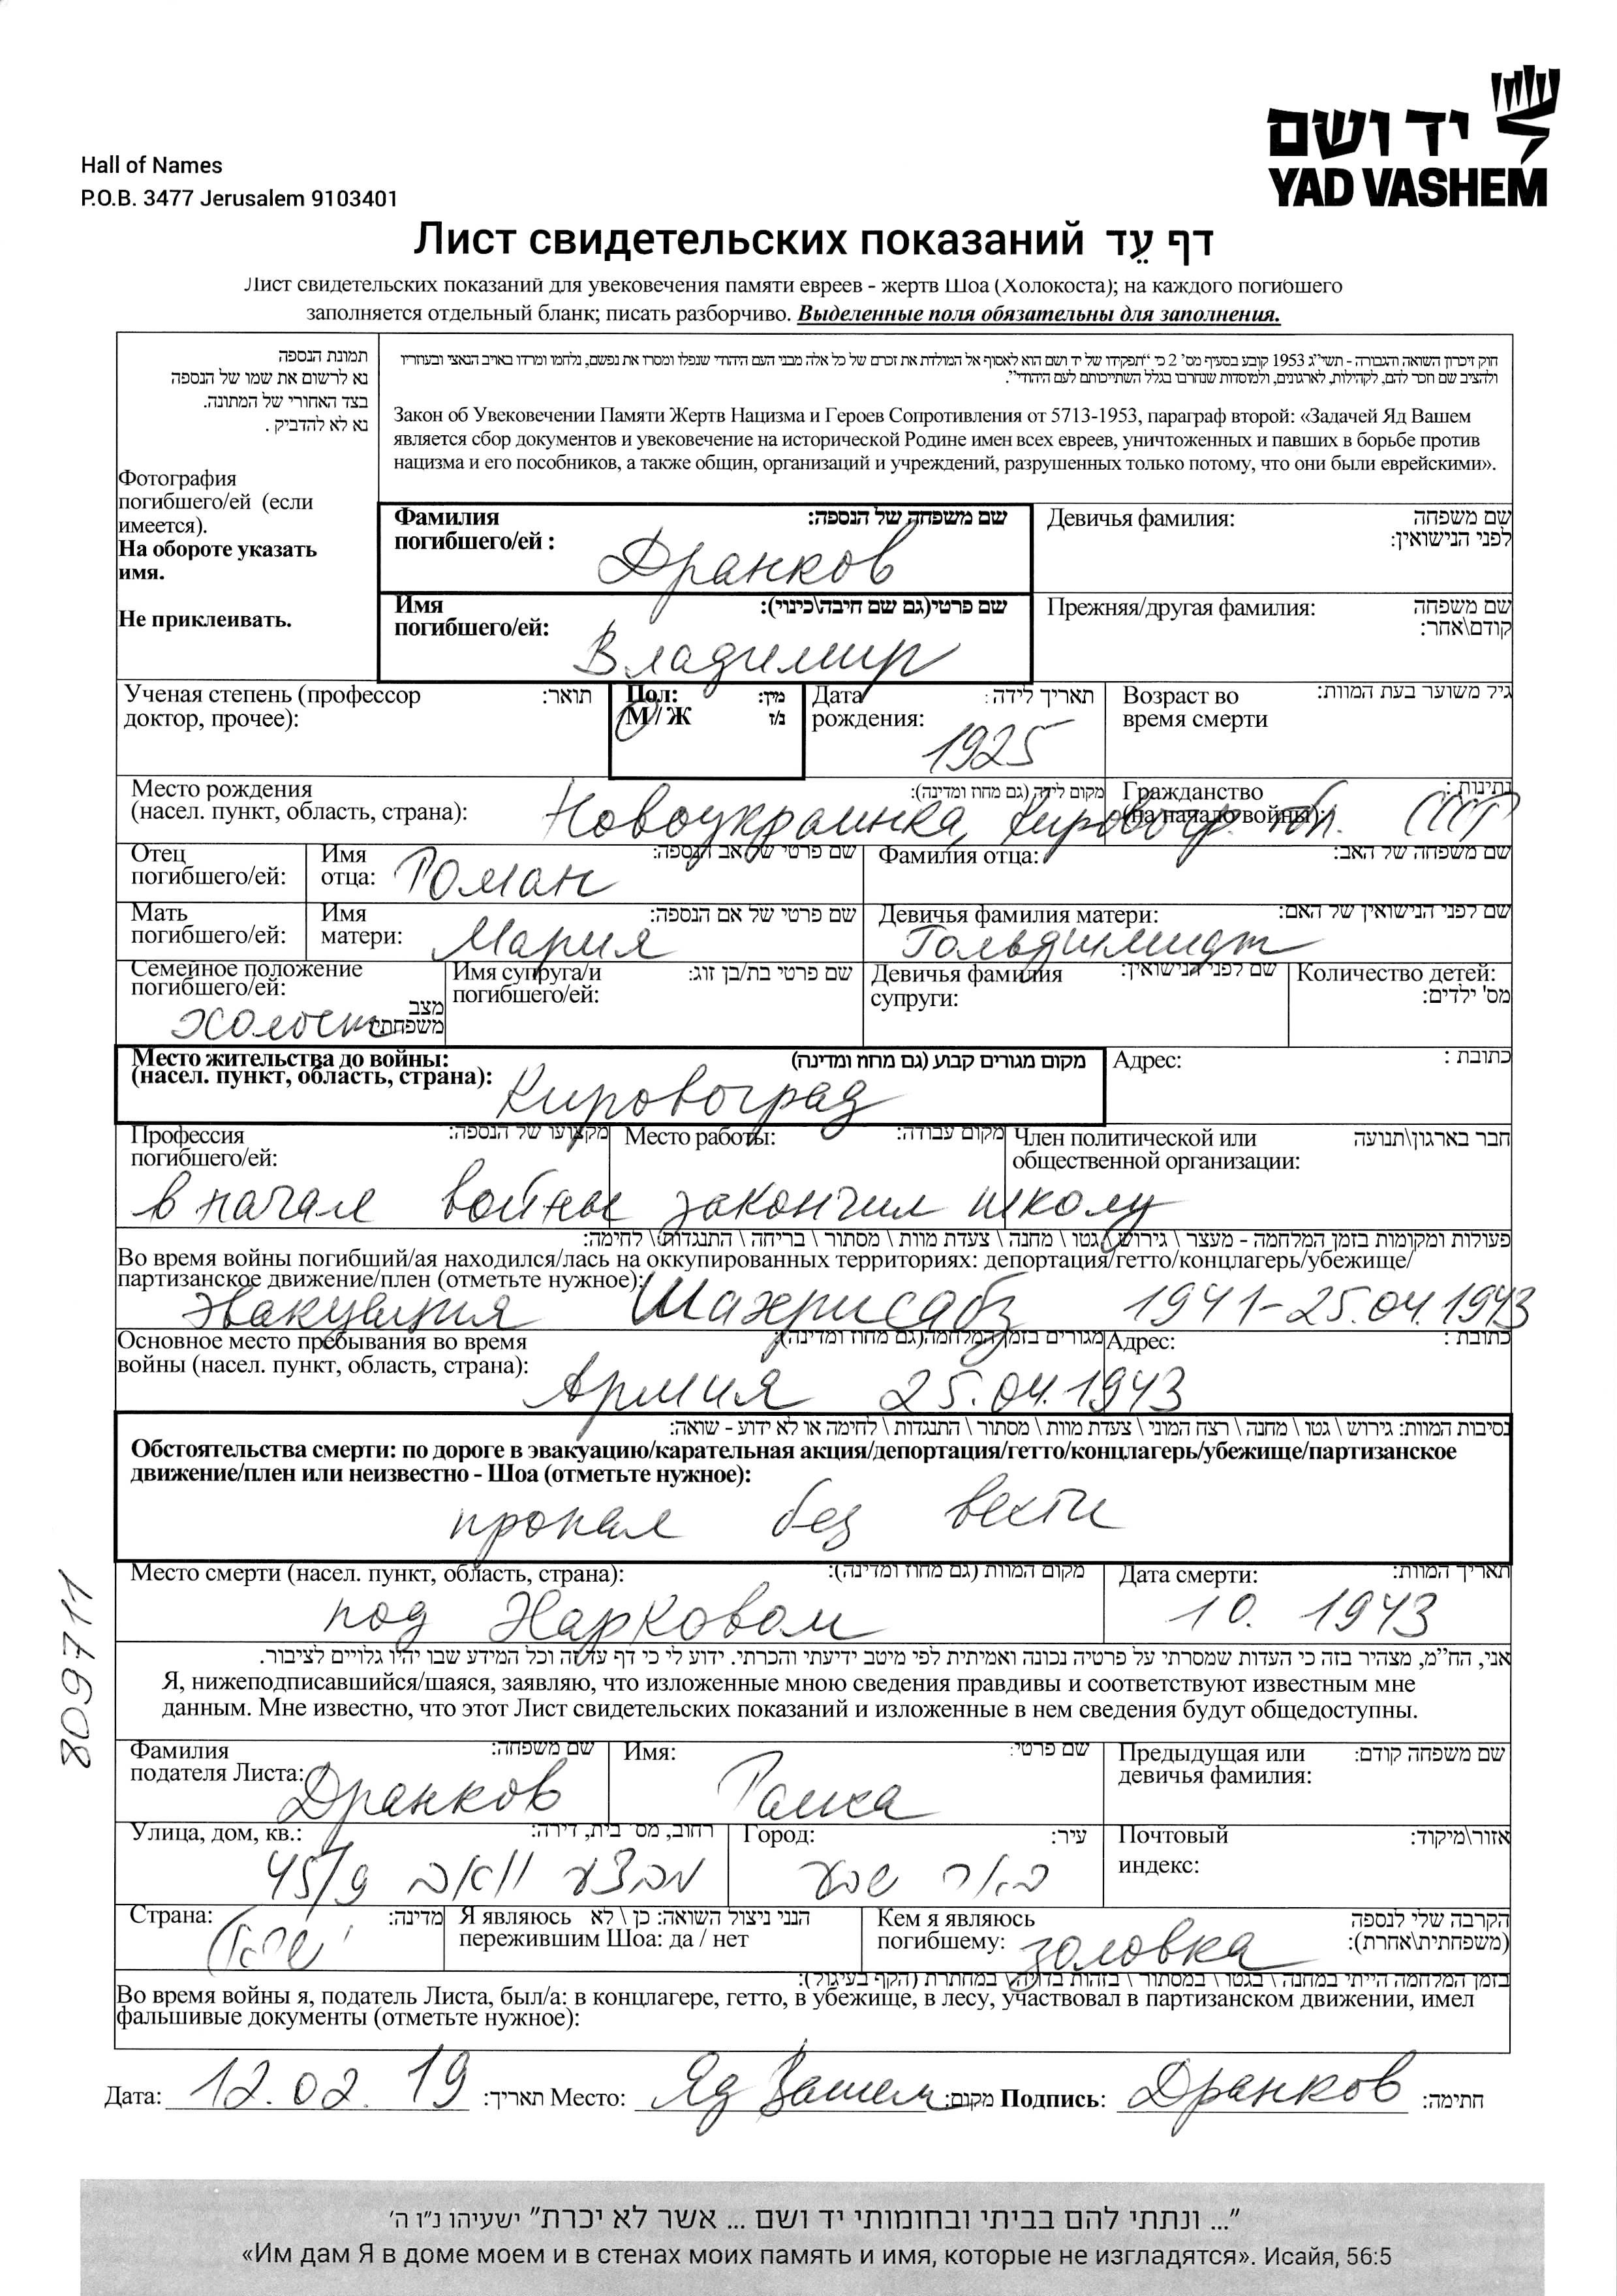 יד ושם
YAD VASHEM
Hall of Names
P.O.B. 3477 Jerusalem 9103401
Лист свидетельских показаний דף עֵד
Лист свидетельских показаний для увековечения памяти евреев - жертв Шоа (Холокоста); на каждого погибшего
заполняется отдельный бланк; писать разборчиво. Выделенные поля обязательны для заполнения.
תמונת הנספה
נא לרשום את שמו של הנספה
בצד האחורי של המתונה.
נא לא להדביק .
Фотография
погибшего/ей (если
имеется).
На обороте указать
имя.
Не приклеивать.
חוק זיכרון השואה והגבורה - תשי"ג 1953 קובע בסעיף מס' 2 כי "תפקידו של יד ושם הוא לאסוף אל המולדת את זכרם של כל אלה מבני העם היהודי שנפלו ומסרו את נפשם, נלחמו ומרדו באויב הנאצי ובעוזריו
ולהציב שם וזכר להם, לקהילות, לארגונים, ולמוסדות שנחרבו בגלל השתייכותם לעם היהודי".
Закон об Увековечении Памяти Жертв Нацизма и Героев Сопротивления от 5713-1953, параграф второй: «Задачей Яд Вашем
является сбор документов и увековечение на исторической Родине имен всех евреев, уничтоженных и павших в борьбе против
нацизма и его пособников, а также общин, организаций и учреждений, разрушенных только потому, что они были еврейскими».
Фамилия שם משפחה של הנספה:
погибшего/ей : Дранков
Девичья фамилия: שם משפחה
לפני הנישואין:
Имя שם פרטי(גם שם חיבה\כינוי):
погибшего/ей: Владимир
Прежняя/другая фамилия: שם משפחה
קודם\אחר:
Ученая степень (профессор תואר:
доктор, прочее):
Пол: מין:
М / Ж ז/נ
Дата תאריך לידה :
рождения: 1925
Возраст во גיל משוער בעת המוות:
время смерти
Место рождения מקום לידה (גם מחוז ומדינה):
(насел. пункт, область, страна): Новоукраинка, Кировогр. обл. СССР
Гражданство נתינות :
(на начало войны):
Отец
погибшего/ей:
Имя שם פרטי של אב הנספה:
отца: Роман
Фамилия отца: שם משפחה של האב:
Мать
погибшего/ей:
Имя שם פרטי של אם הנספה:
матери: Мария
Девичья фамилия матери: שם לפני הנישואין של האם:
Гольдшмидт
Семейное положение
погибшего/ей: מצב
משפחתי:
холост
Имя супруга/и שם פרטי בת/בן זוג:
погибшего/ей:
Девичья фамилия שם לפני הנישואין:
супруги:
Количество детей:
מס' ילדים:
Место жительства до войны: מקום מגורים קבוע (גם מחוז ומדינה)
(насел. пункт, область, страна): Кировоград
Адрес: כתובת :
Профессия מקצועו של הנספה:
погибшего/ей:
Место работы: מקום עבודה:
Член политической или חבר בארגון\תנועה
общественной организации:
в начал войны закончил школу
פעולות ומקומות בזמן המלחמה - מעצר \ גירוש \ גטו \ מחנה \ צעדת מוות \ מסתור \ בריחה \ התנגדות \ לחימה:
Во время войны погибший/ая находился/лась на оккупированных территориях: депортация/гетто/концлагерь/убежище/
партизанское движение/плен (отметьте нужное):
эвакуация Шахрисабз 1941-25.04.1943
Основное место пребывания во время מגורים בזמן המלחמה(גם מחוז ומדינה):
войны (насел. пункт, область, страна):
Адрес: כתובת :
Армия 25.04.1943
נסיבות המוות: גירוש \ גטו \ מחנה \ רצח המוני \ צעדת מוות \ מסתור \ התנגדות \ לחימה או לא ידוע - שואה:
Обстоятельства смерти: по дороге в эвакуацию/карательная акция/депортация/гетто/концлагерь/убежище/партизанское
движение/плен или неизвестно - Шоа (отметьте нужное):
пропал без вести
Место смерти (насел. пункт, область, страна): מקום המוות (גם מחוז ומדינה):
под Харковом
Дата смерти: תאריך המוות:
10. 1943
אני, הח"מ, מצהיר בזה כי העדות שמסרתי על פרטיה נכונה ואמיתית לפי מיטב ידיעתי והכרתי. ידוע לי כי דף עד זה וכל המידע שבו יהיו גלויים לציבור.
Я, нижеподписавшийся/шаяся, заявляю, что изложенные мною сведения правдивы и соответствуют известным мне
данным. Мне известно, что этот Лист свидетельских показаний и изложенные в нем сведения будут общедоступны.
809711
Фамилия שם משפחה:
подателя Листа: Дранков
Имя: שם פרטי:
Раиса
Предыдущая или שם משפחה קודם:
девичья фамилия:
Улица, дом, кв.: רחוב, מס' בית, דירה:
מבצע יואב 45/9
Город: עיר:
באר שבע
Почтовый אזור\מיקוד:
индекс:
Страна: מדינה:
ישראל
Я являюсь הנני ניצול השואה: כן \ לא
пережившим Шоа: да / нет
Кем я являюсь הקרבה שלי לנספה
погибшему: золовка (משפחתית\אחרת):
בזמן המלחמה הייתי במחנה \ בגטו \ במסתור \ בזהות בדויה\ במחתרת (הקף בעיגול):
Во время войны я, податель Листа, был/а: в концлагере, гетто, в убежище, в лесу, участвовал в партизанском движении, имел
фальшивые документы (отметьте нужное):
Дата: 12.02.19 תאריך: Место: Яд Вашем מקום: Подпись: Дранков חתימה:
"... ונתתי להם בביתי ובחומותי יד ושם ... אשר לא יכרת" ישעיהו נ"ו ה'
«Им дам Я в доме моем и в стенах моих память и имя, которые не изгладятся». Исайя, 56:5